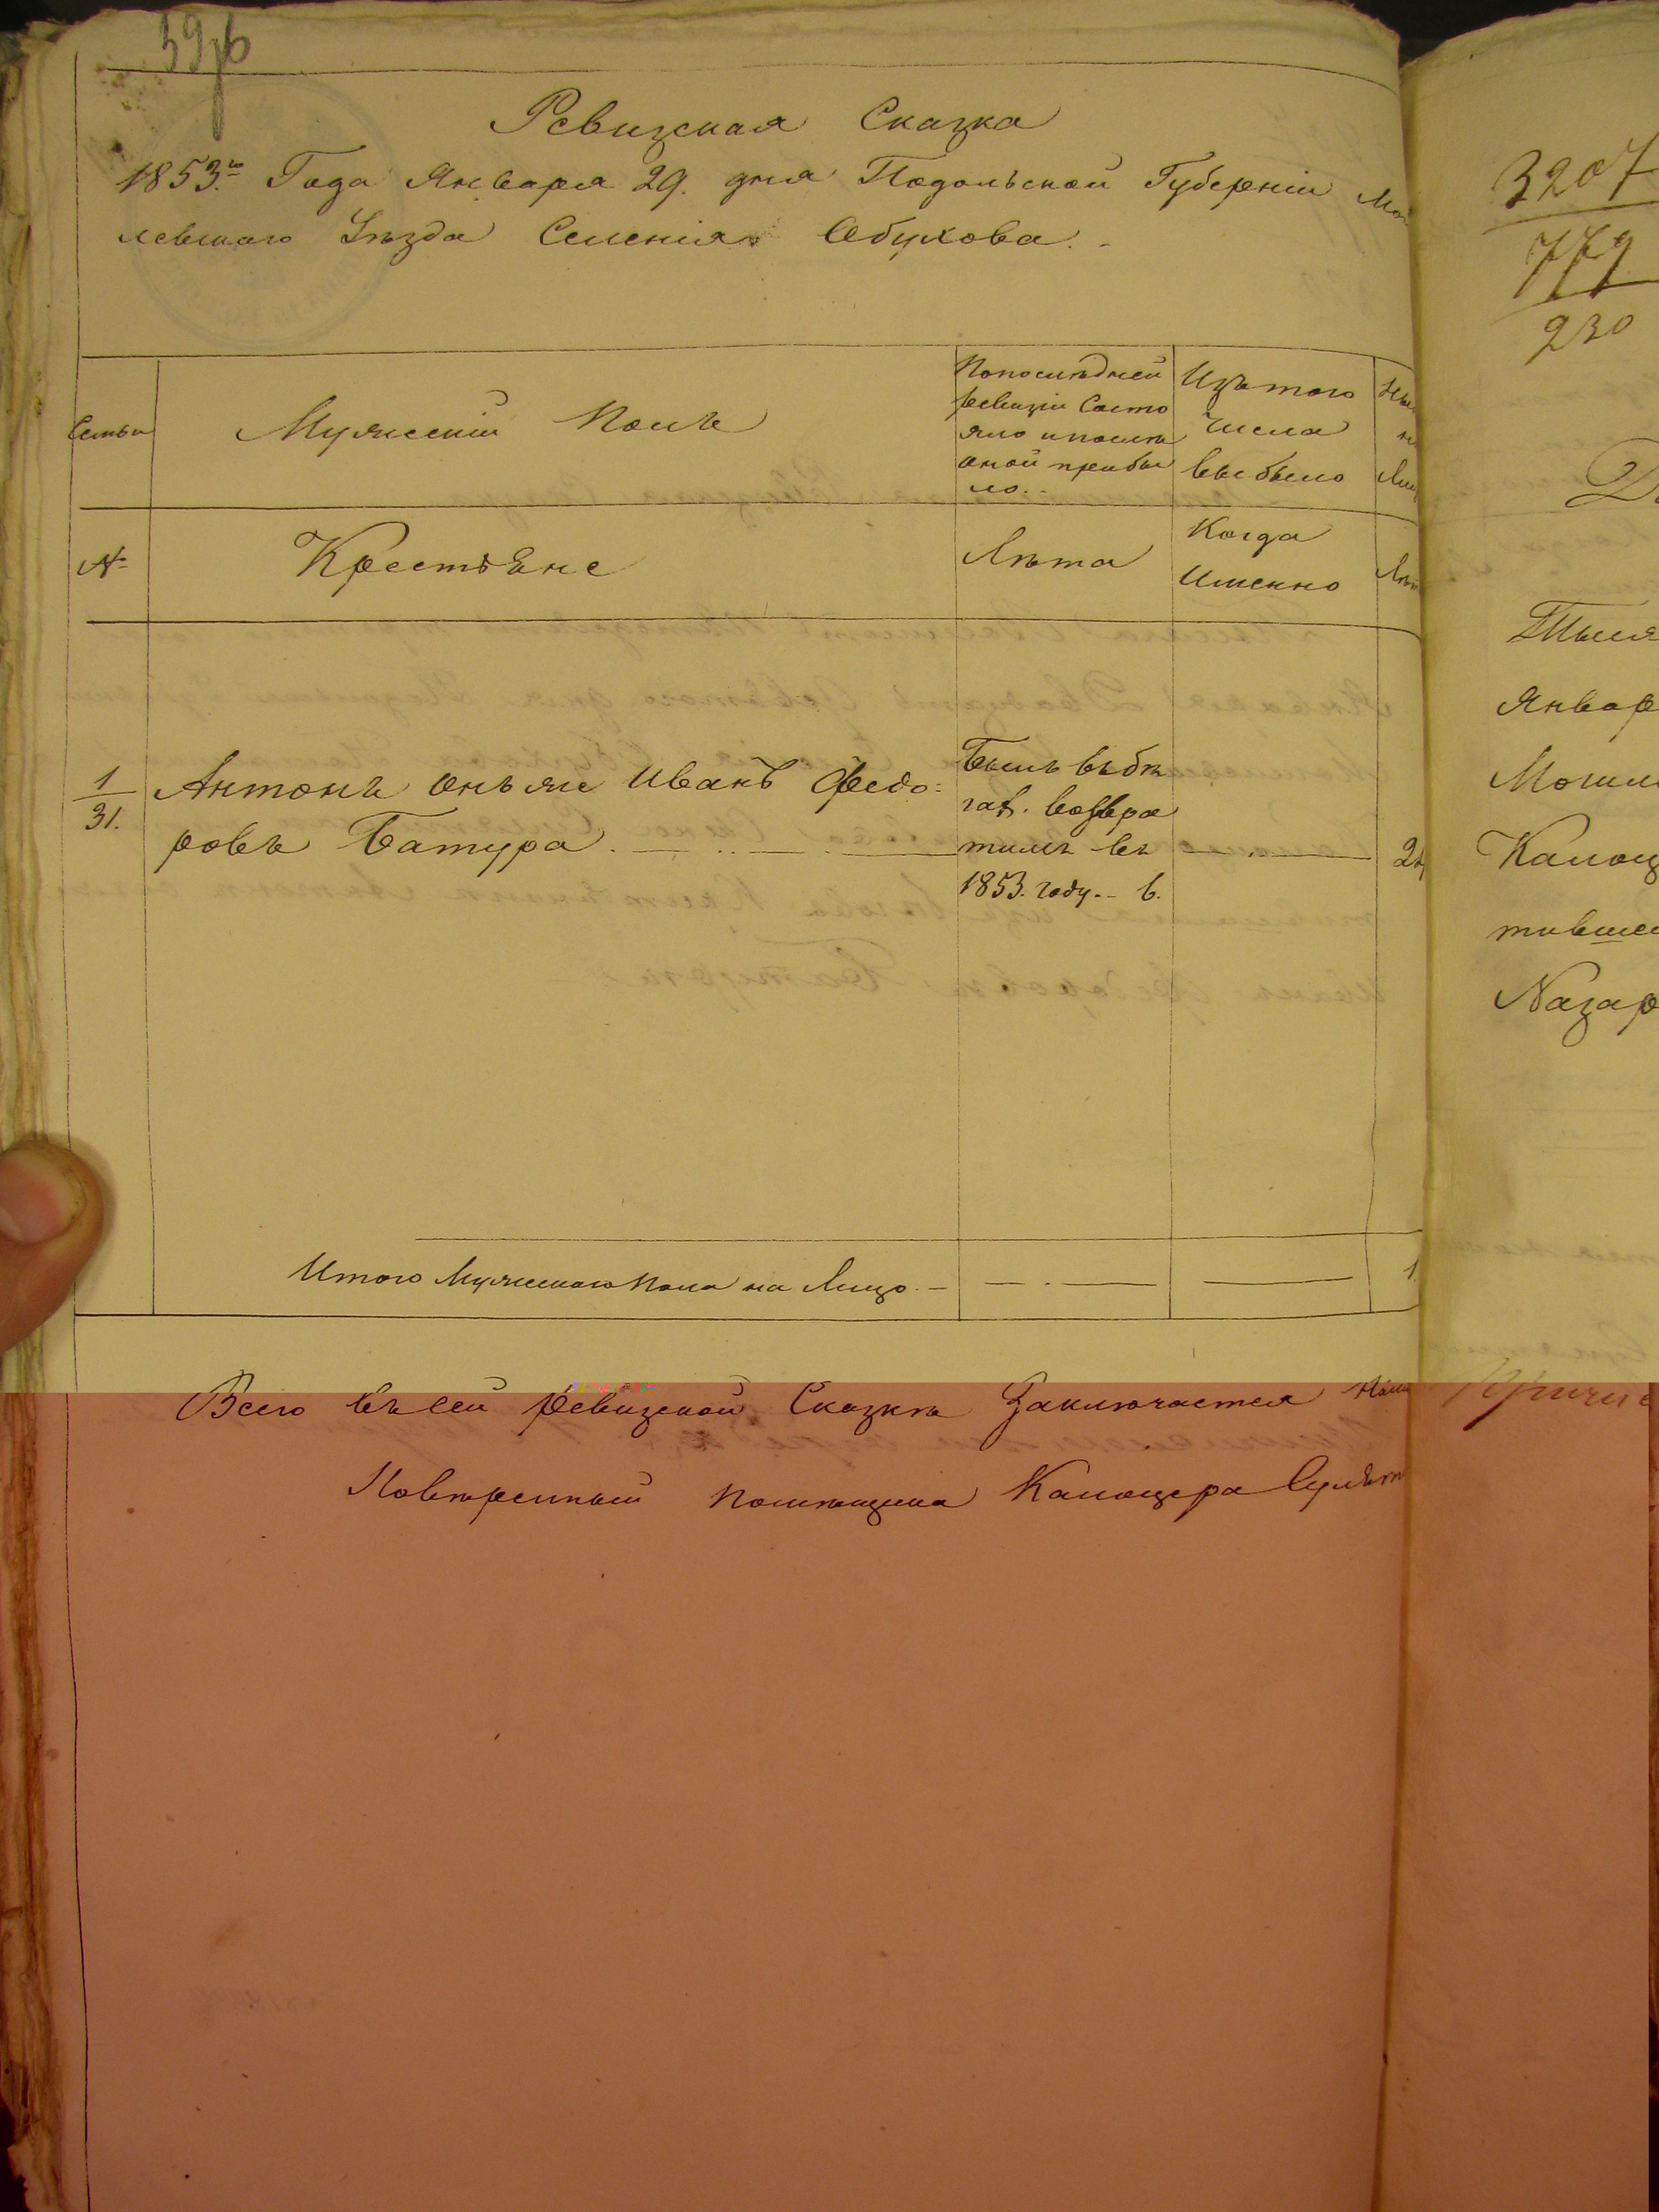 Ревизская Сказка
1853.го Года Января 29. дня Подольской Губерніи Мог
левскаго Уѣзда Селенія Обухова.
Семьи
Мужескій Полъ
По последней
ревизіи Состо
яло и послѣ
оной прибы
ло.
Изъ того
Числа
выбыло
№
Крестьяне
Лѣта
Когда
Именно
1
31.
Антонъ онъ же Иванъ Федо=
ровъ Батура.
Былъ въ бѣ
гах. возвра
тилсъ въ
1853. году.
Итого Мужескаго пола на Лицо.
1.
Всего въ сей ревизской Сказкѣ Заключается
Повѣренный помѣщика
3207
779
230
Январ
Назар